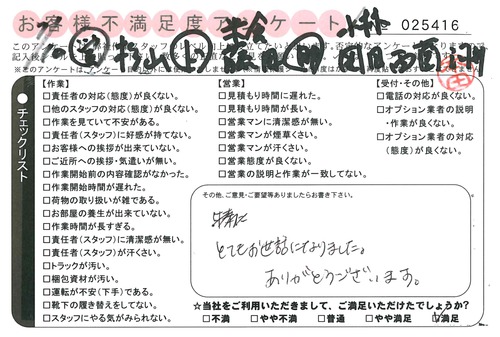 お客様不満足度アンケート
025416
チェックリスト
【作業】
□責任者の対応(態度)が良くない。
□他のスタッフの対応(態度)が良くない。
□作業を見ていて不安がある。
□責任者(スタッフ)に好感が持てない。
□お客様への挨拶が出来ていない。
□ご近所への挨拶・気遣いが無い。
□作業開始前の内容確認がなかった。
□作業開始時間が遅れた。
□荷物の取り扱いが雑である。
□お部屋の養生が出来ていない。
□作業時間が長すぎる。
□責任者(スタッフ)に清潔感が無い。
□責任者(スタッフ)が汗くさい。
□トラックが汚い。
□梱包資材が汚い。
□運転が不安(下手)である。
□靴下の履き替えをしてない。
□スタッフにやる気がみられない。
【営業】
□見積もり時間に遅れた。
□見積もり時間が長い。
□営業マンに清潔感が無い。
□営業マンが煙草くさい。
□営業マンが汗くさい。
□営業態度が良くない。
□営業の説明と作業が一致してない。
【受付・その他】
□電話の対応が良くない。
□オプション業者の説明・作業が良くない。
□オプション業者の対応(態度)が良くない。
その他、ご意見・ご要望等ありましたらお書き下さい。
とてもお世話になりました。
ありがとうございます。
☆当社をご利用いただきまして、ご満足いただけたでしょうか?
□不満 □やや不満 □普通 □やや満足 ☑満足